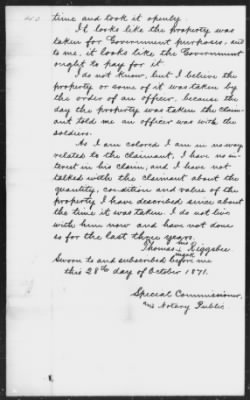 time and took it openly
It looks like the property was
taken for Government purposes, and
to me, it looks like the Government
ought to pay for it
I do not know, but I believe the
property or some of it was taken by
the order of an officer, because the
day the property was taken the claim-
ant told me an officer was with the
soldiers.
As I am colored I am in no way
related to the claimant, I have no in-
terest in his claim, and I have not
talked with the claimant about the
quantity, condition and value of the
property I have described since about
the time it was taken. I do not live
with him now and have not done
so for the last three years.
his
Thomas x Riggsbee
mark
Sworn to and subscribed before me
this 28th day of October 1871.
Special Commissioner,
and Notary Public